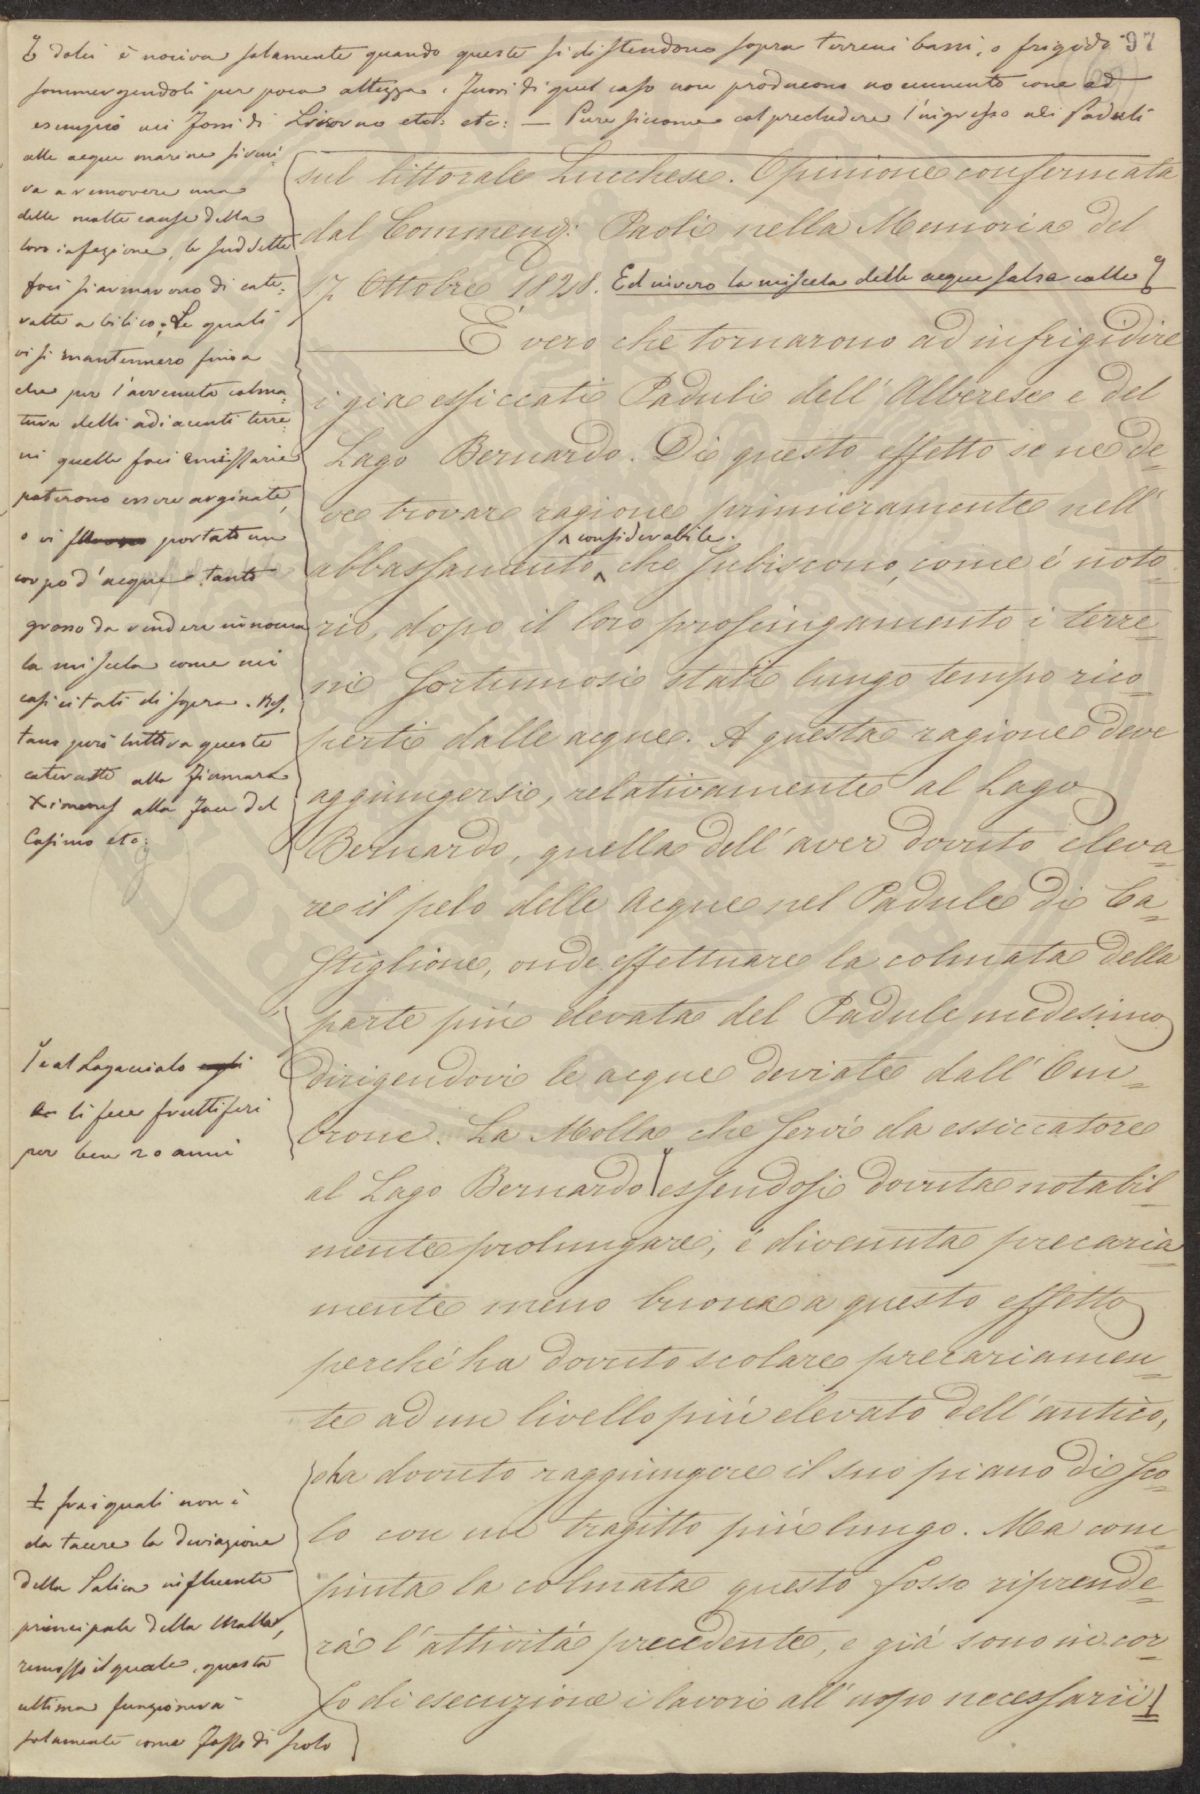 97
dolci è nociva solamente quando queste si distendono sopra terreni bassi, o frigidi
sommergendoli per poca altezza. Fuori di quel caso non producono nocumento come ad
esempio nei Fossi di Livorno etc: etc: — Pure siccome col precludere l'ingresso nei Paduli
alle acque marine si veni-
va a rimovere una
delle molte cause della
loro infezione, le suddette
foci si armarono di cate-
ratte a bilico; Le quali
vi si mantennero fino a
che per l'avvenuta colma-
tura delli adiacenti terre-
ni quelle foci emissarie
poterono essere arginate,
o vi portato un
corpo d'acque tanto
grosso da rendere innocua
la miscela come nei
casi citati di sopra. Res-
tano però tuttiva queste
cateratte alla Fiumara
Ximenes alla Foce del
Casino etc:
sul littorale Lucchese. Opinione confermata
dal Commend: Paoli nella Memoria del
17 Ottobre 1828. Ed invero la miscela delle acque salse colle
È vero che tornarono ad infrigidire
i già essiccati Paduli dell'Alberese e del
Lago Bernardo. Di questo effetto se ne de-
ve trovare ragione primieramente nell'
considerabile
abbassamento che subiscono, come é noto-
rio, dopo il loro prosciugamento i terre-
ni fortumosi stati lungo tempo rico-
perti dalle acque. A questa ragione deve
aggiungersi, relativamente al Lago
Bernardo, quella dell'aver dovuto eleva-
re il pelo delle Acque nel Padule di Ca-
stiglione, onde effettuare la colmata della
parte più elevata del Padule medesimo
dirigendovi le acque deviate dall'Om-
brone. La Molla che servì da essiccatore
al Lago Bernardo essendosi dovuta notabil-
mente prolungare, è divenuta precaria-
mente meno buona a questo effetto
perché ha dovuto scolare precariamen-
te ad un livello più elevato dell'antico,
ha dovuto raggiungere il suo piano di sco-
lo con un tragitto più lungo. Ma com-
piuta la colmata questo fosso riprende-
rà l'attività precedente, e già sono in cor-
so di esecuzione i lavori all'uopo necessarii
e al Lagacciolo
li fece fruttiferi
per ben 20 anni
fra i quali non è
da tacere la deviazione
della Salica influente
principale della Molla,
remosso il quale, questa
ultima funzionerà
solamente come Fosso di scolo